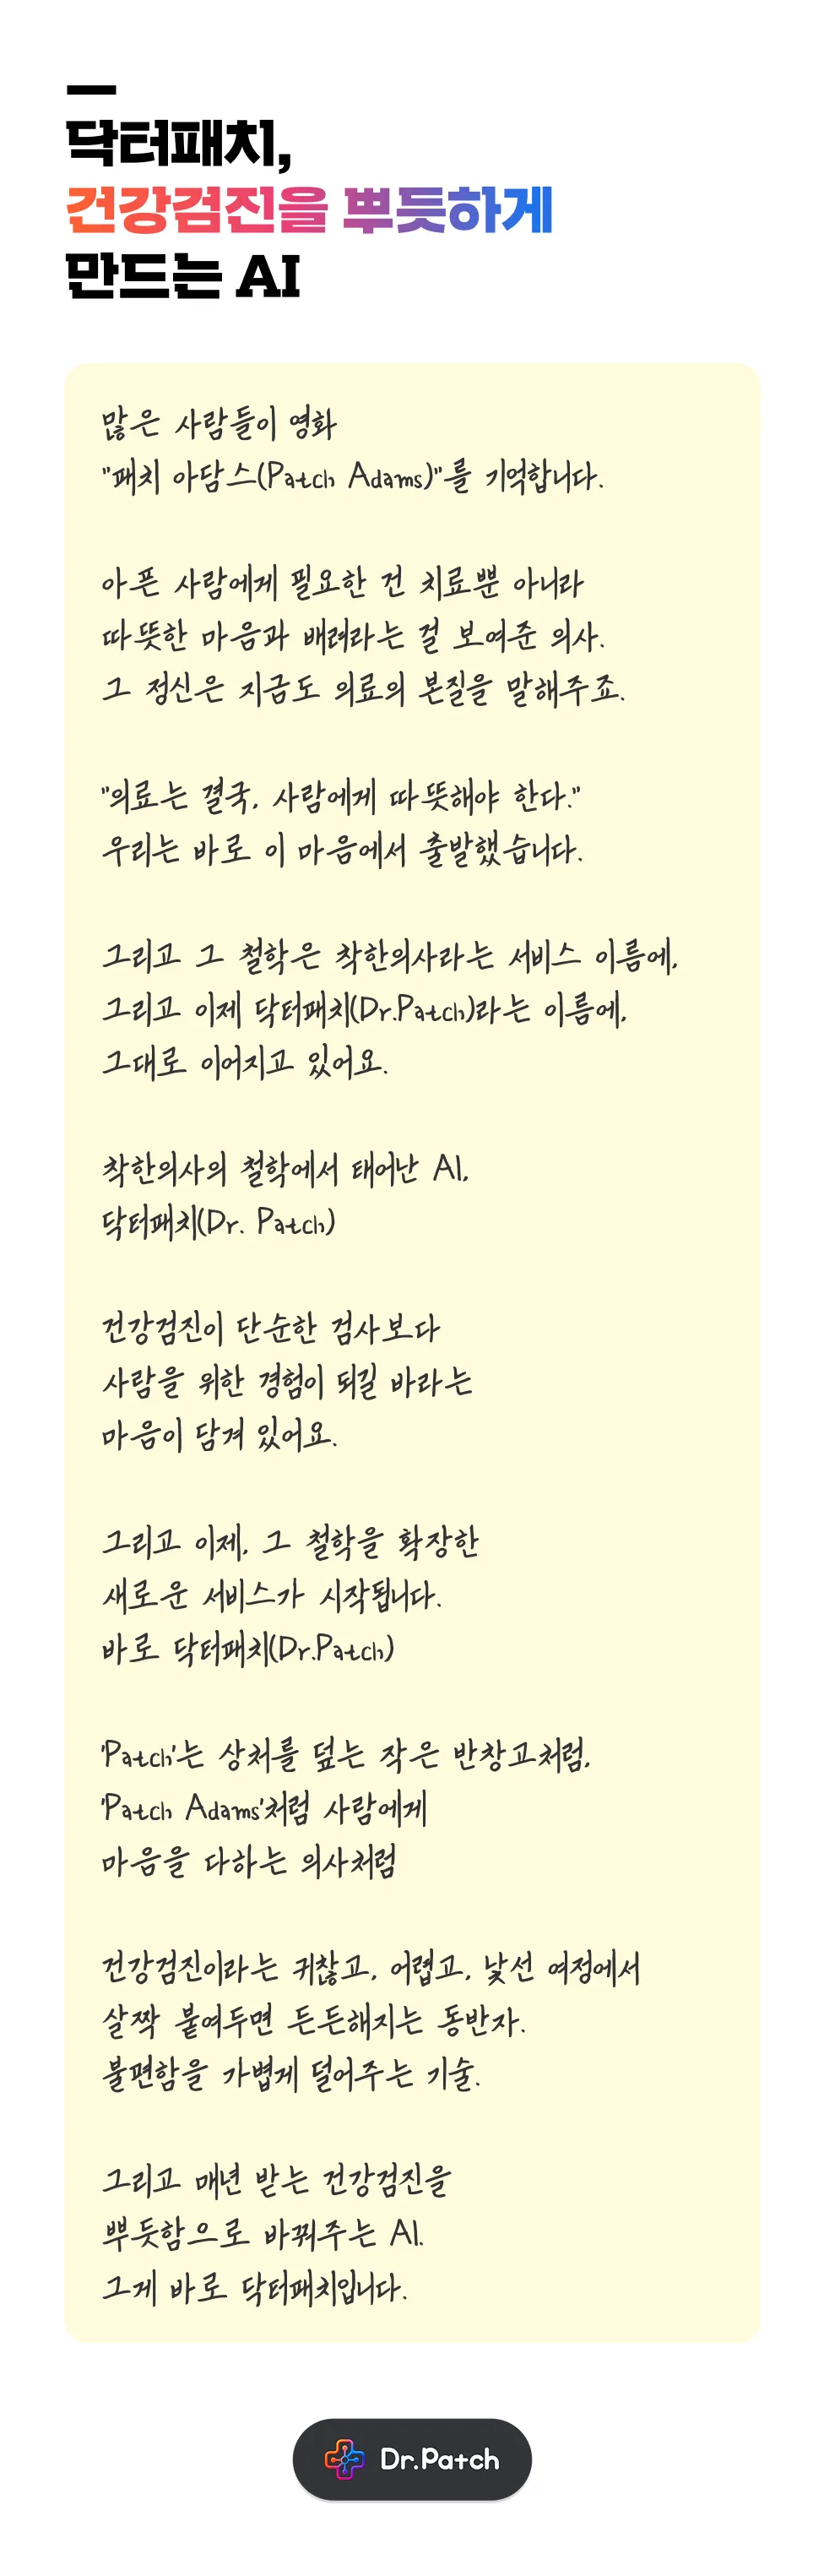 닥터패치,
건강검진을 뿌듯하게
만드는 AI
많은 사람들이 영화
"패치 아담스(Patch Adams)"를 기억합니다.
아픈 사람에게 필요한 건 치료뿐 아니라
따뜻한 마음과 배려라는 걸 보여준 의사.
그 정신은 지금도 의료의 본질을 말해주죠.
"의료는 결국, 사람에게 따뜻해야 한다."
우리는 바로 이 마음에서 출발했습니다.
그리고 그 철학은 착한의사라는 서비스 이름에,
그리고 이제 닥터패치(Dr.Patch)라는 이름에,
그대로 이어지고 있어요.
착한의사의 철학에서 태어난 AI,
닥터패치(Dr. Patch)
건강검진이 단순한 검사보다
사람을 위한 경험이 되길 바라는
마음이 담겨 있어요.
그리고 이제, 그 철학을 확장한
새로운 서비스가 시작됩니다.
바로 닥터패치(Dr.Patch)
'Patch'는 상처를 덮는 작은 반창고처럼,
'Patch Adams'처럼 사람에게
마음을 다하는 의사처럼
건강검진이라는 귀찮고, 어렵고, 낯선 여정에서
살짝 붙여두면 든든해지는 동반자.
불편함을 가볍게 덜어주는 기술.
그리고 매년 받는 건강검진을
뿌듯함으로 바꿔주는 AI.
그게 바로 닥터패치입니다.
Dr.Patch